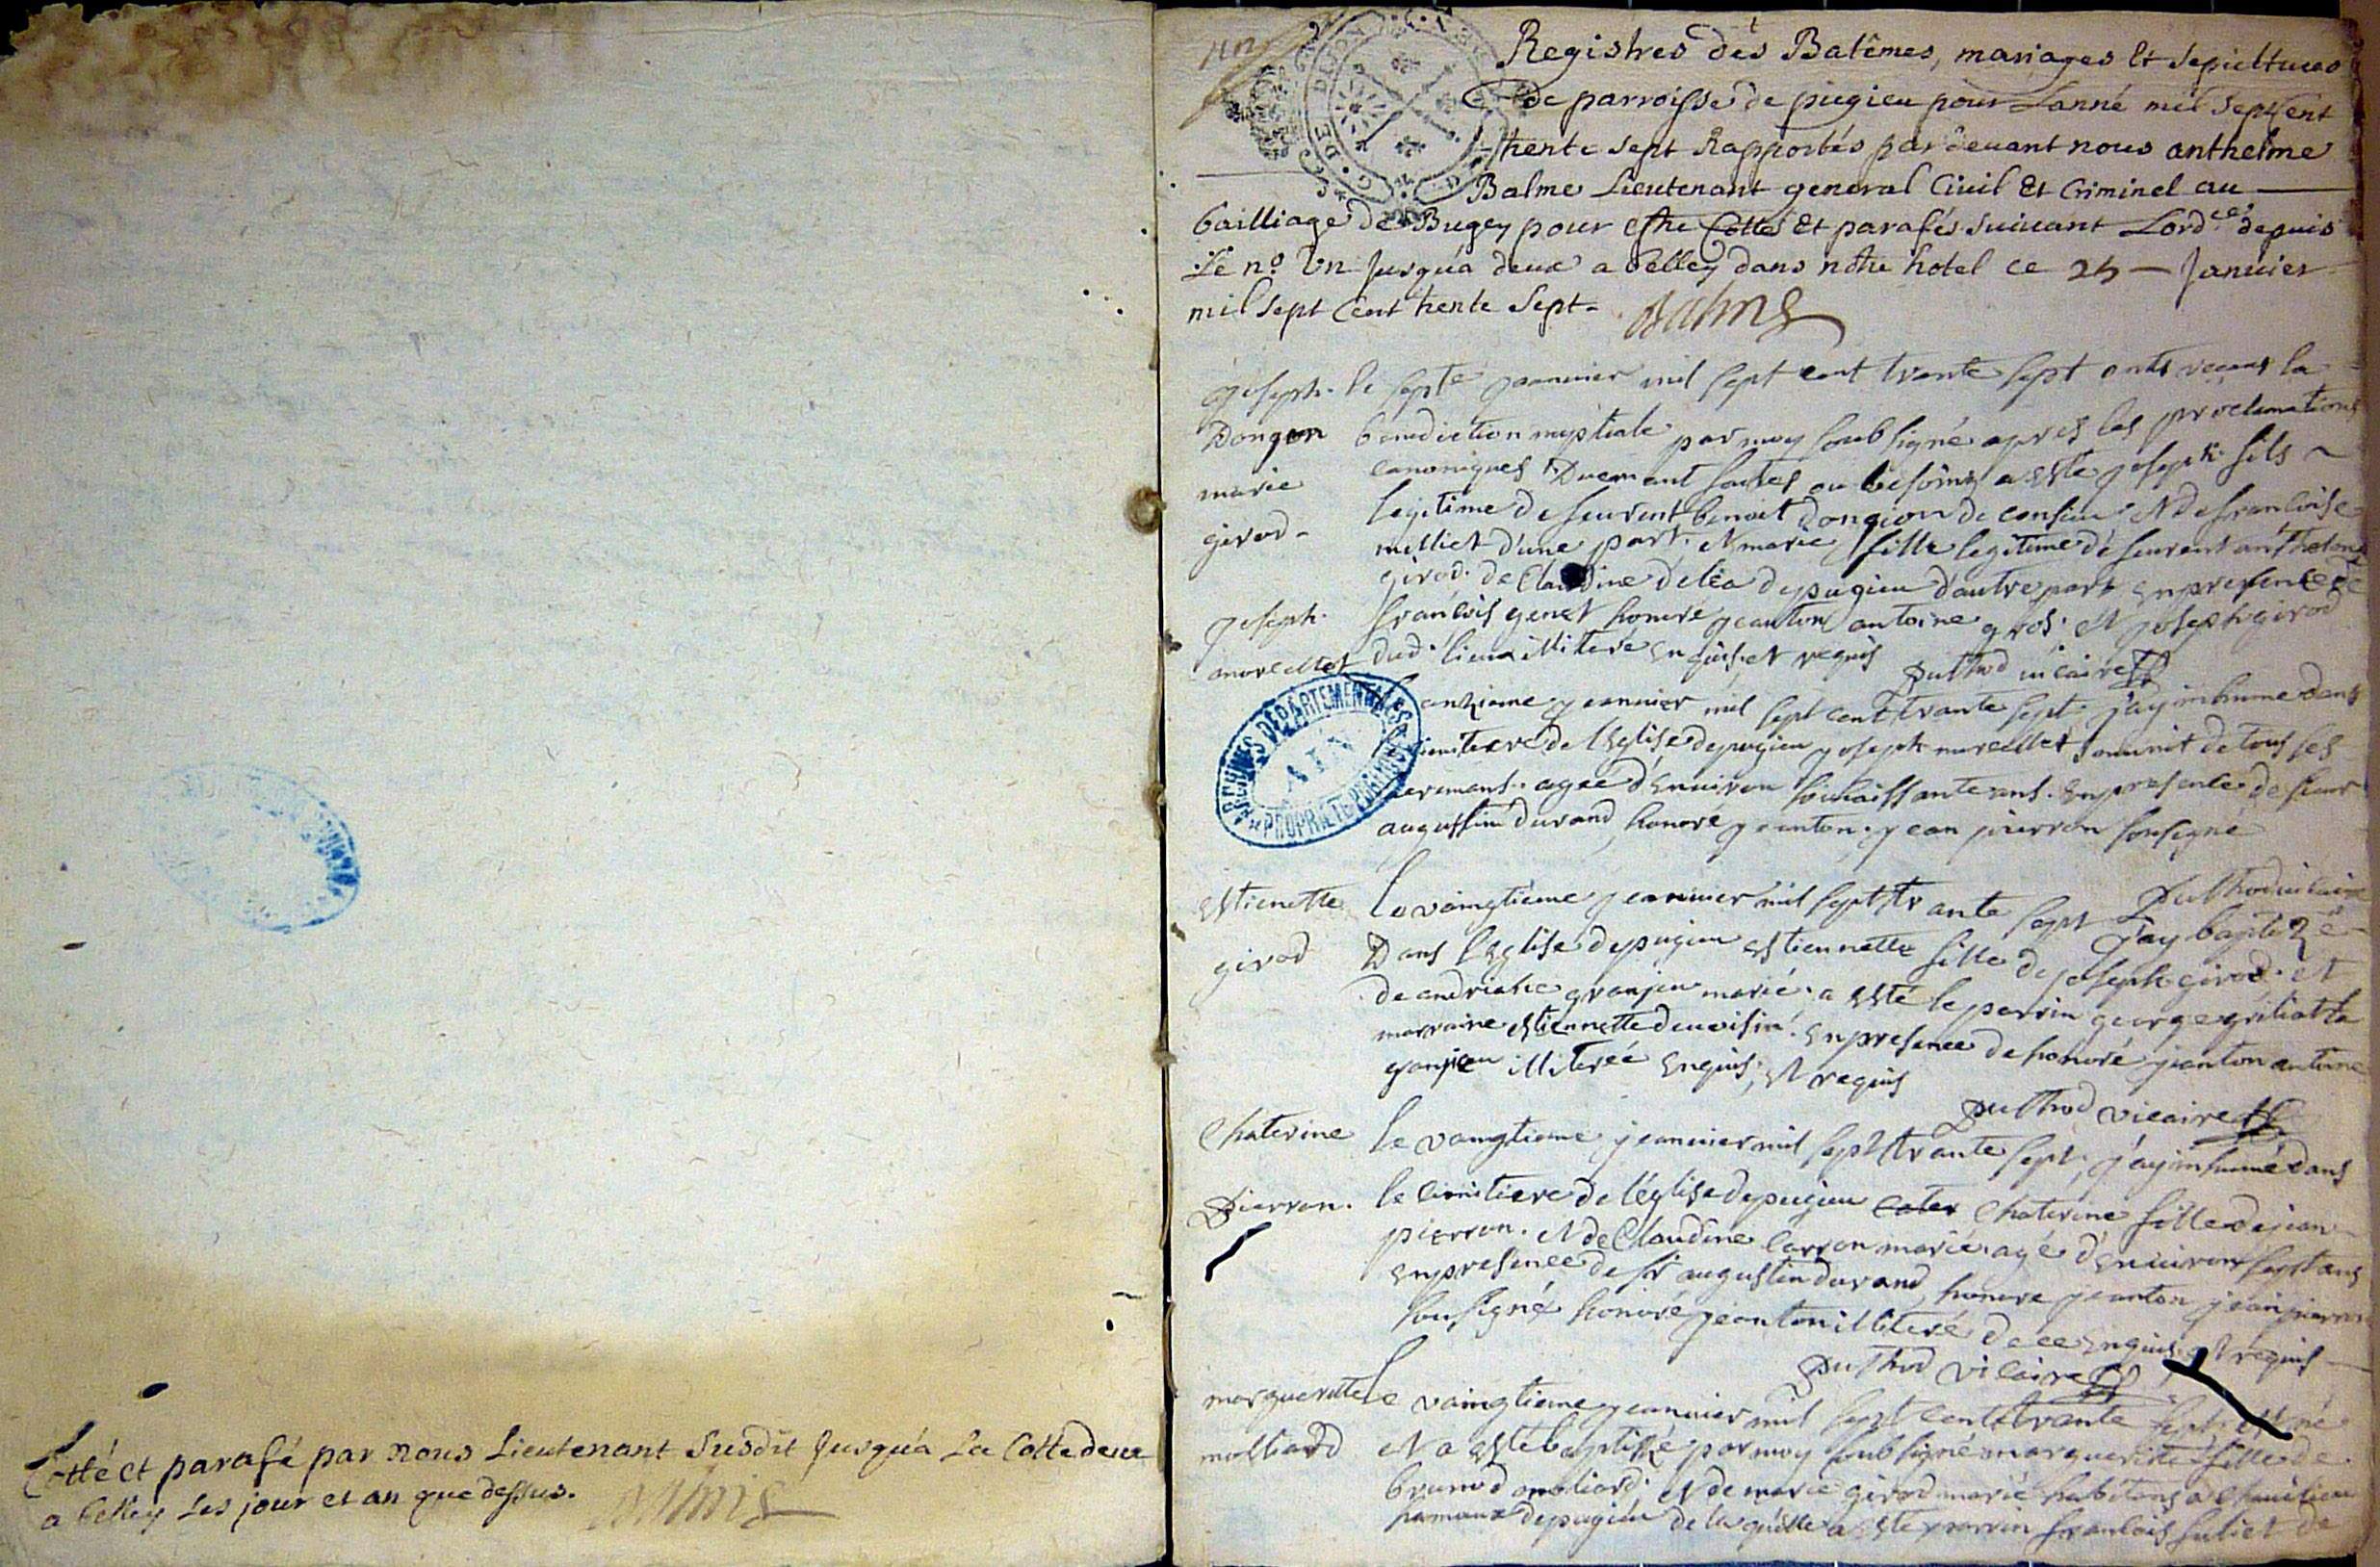 Cotté et parafé par nous Lieutenant Susdit Jusqu'a La Cotte deux
a belley Les jour et an que dessus.
Balme
Registres des Batêmes, mariages Et sepultures
de parroisse de pugieu pour Lanné mil Sept Cent
trente sept Rapportés par devant nous anthelme
Balme Lieutenant general Civil Et Criminel au
bailliage de Bugey pour estre Cottés Et parafés suivant Lord.ce depuis
Le no. Un Jusqu'a deux a belley dans nôtre hotel ce 25 Janvier
mil sept Cent trente Sept
Balme
joseph
Dongon
marie
girod
le sept.e jeanvier mil sept cent trante sept onts reçeus la
benediction nuptiale par moy soubsigné apres les proclamations
canoniques Duemant faites ou besoins a esté joseph fils
legitime de feu benoit dongion de et de francoise
milliet d'une part et marie fille legitime de feu
girod de Claudine deléa de pugieu d'autre part en presence de
francois genet honoré jeanton antoine gros et joseph girod
dud. lieu illiteré enquis et requis puthod vicaire
joseph
mareillet
onzieme jeanvier mil sept cent trante sept j'ay inhume dans
cimitiere de l'Eglise de pugieu joseph mareillet munit de tous ses
agée d'environ soissante ans. en presence de sieur
augustin durand honoré jeanton jean pierron sousigné
puthod vicaire
Estienette
girod
Le vaingtieme jeanvier mil sept trante sept j'ay baptizé
Dans l'Eglise de pugieu estiennette fille de joseph girod et
de granjeu marié a esté le parrin george la
marraine estiennette devoisin. en presence de honoré jeanton antoine
illiteré enquis et requis
puthod vicaire
Chaterine
Pierron.
le vaingtieme jeanvier mil sept trante sept j'ay inhumé dans
le cimitiere de l'église de pugieu cater Chaterine fille de jean
pierron. et de Claudine carron marié. agé d'environ sept ans
en presence de sr augustin durand, honoré jeanton jean pierron
sousigné honoré jeanton illiteré de ce enquis et requis
puthod vicaire
marguerite
molliard
Le vaingtieme jeanvier mil sept cent trante sept est né
et a esté baptizé par moy soubsigné marguerite fille de
molliard et de marie girod marié habitans a
hamaux de pugieu de la quelle a esté parrin francois juliet de
ARCHIVES DÉPARTEMENTALES
AIN
PROPRIÉTÉ PUBLIQUE